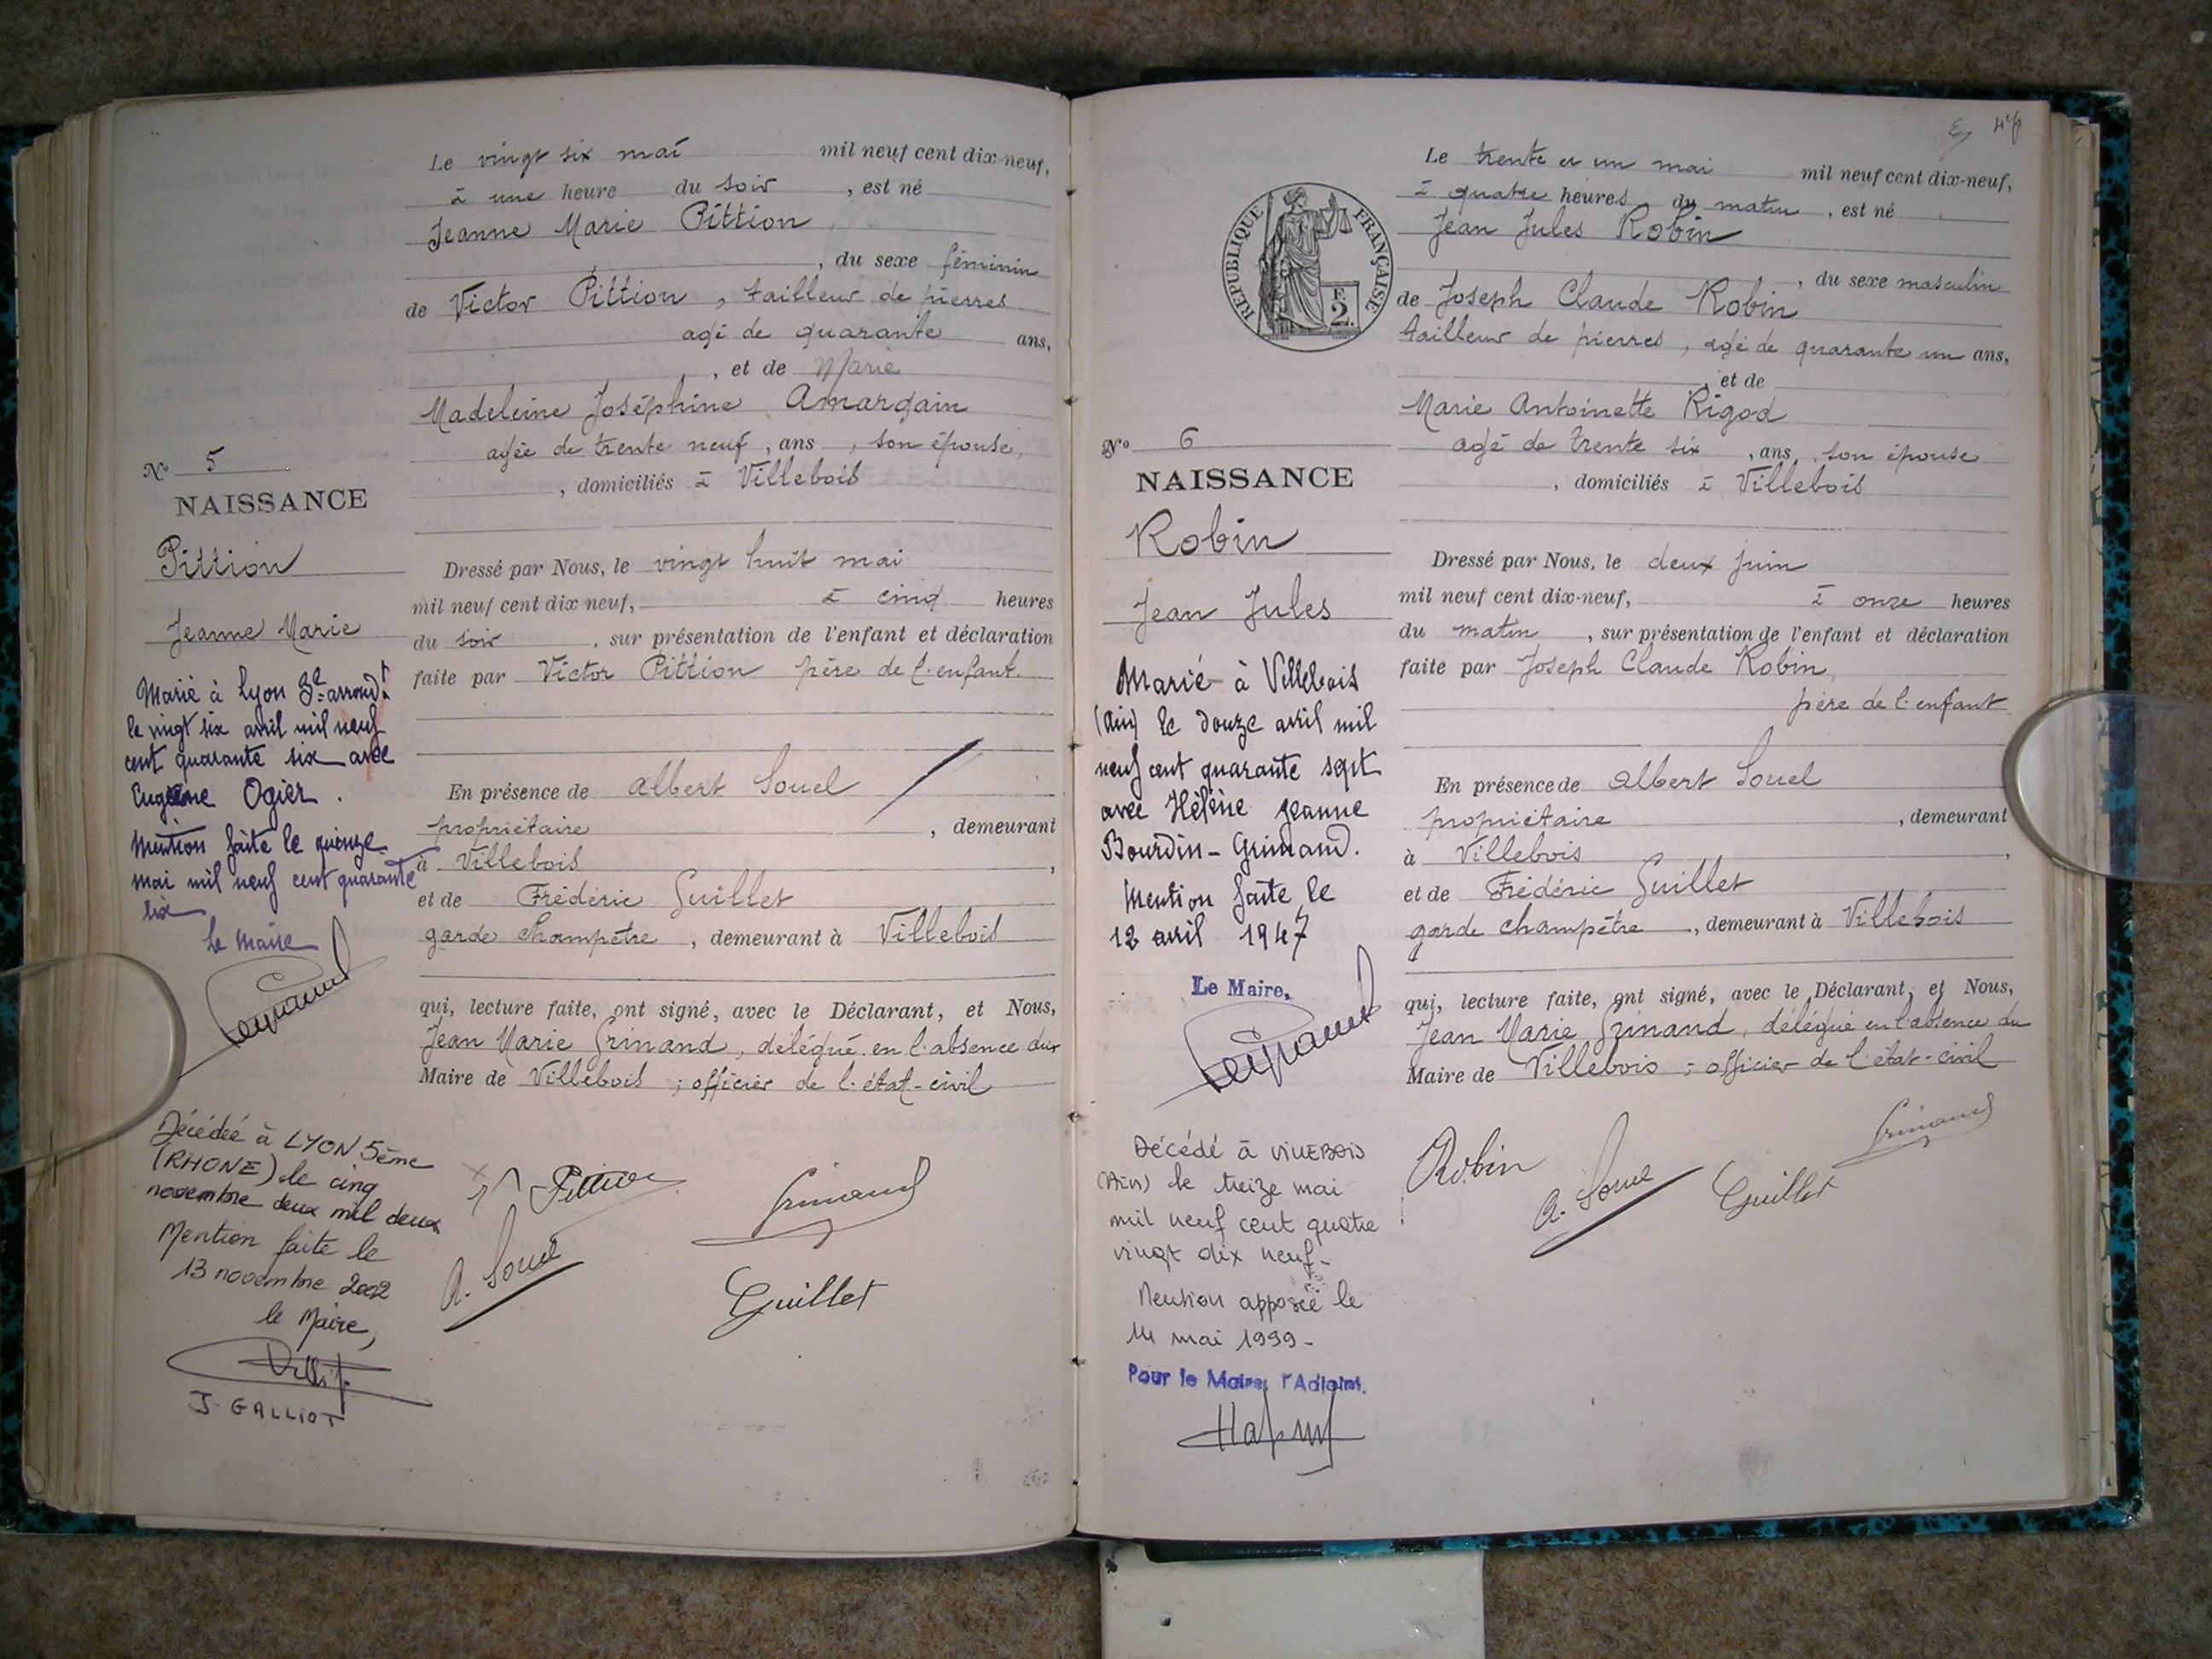 Le vingt six mai mil neuf cent dix-neuf,
à une heure du soir, est né
Jeanne Marie Pittion
, du sexe féminin
de Victor Pittion, tailleur de pierres
agé de quarante ans,
, et de Marie
Madeleine Joséphine Amargain
agée de trente neuf, ans, son épouse,
, domiciliés à Villebois
N° 5
NAISSANCE
Pittion
Jeanne Marie
Marié à Lyon 3e arrondt
le vingt six avril mil neuf
cent quarante six avec
Eugène Ogier.
Mention faite le quinze
mai mil neuf cent quarante
six
Le Maire
Décédée à LYON 5ème
(RHONE) le cinq
novembre deux mil deux
Mention faite le
13 novembre 2002
le Maire,
J. GALLIOT
Dressé par Nous, le vingt huit mai
mil neuf cent dix neuf, à cinq heures
du soir, sur présentation de l'enfant et déclaration
faite par Victor Pittion père de l'enfant.
En présence de Albert Souel
propriétaire, demeurant
à Villebois,
et de Frédéric Guillet
garde champêtre, demeurant à Villebois
qui, lecture faite, ont signé, avec le Déclarant, et Nous,
Jean Marie Grinand, délégué en l'absence du
Maire de Villebois; officier de l'état-civil
Pittion
Grinand
A. Souel
Guillet
47
Le trente et un mai mil neuf cent dix-neuf,
à quatre heures du matin, est né
Jean Jules Robin
RÉPUBLIQUE FRANÇAISE
F.
2.
, du sexe masculin
de Joseph Claude Robin
tailleur de pierres, agé de quarante un ans,
, et de
Marie Antoinette Rigod
agé de trente six, ans, son épouse
, domiciliés à Villebois
N° 6
NAISSANCE
Robin
Jean Jules
Marié à Villebois
(Ain) le douze avril mil
neuf cent quarante sept
avec Hélène Jeanne
Bourdin-Grimand.
Mention faite le
12 avril 1947
Le Maire,
Décédé à VILLEBOIS
(Ain) le treize mai
mil neuf cent quatre
vingt dix neuf-
Mention apposée le
14 mai 1999-
Pour le Maire, l'Adjoint.
Dressé par Nous, le deux Juin
mil neuf cent dix-neuf, à onze heures
du matin, sur présentation de l'enfant et déclaration
faite par Joseph Claude Robin,
père de l'enfant
En présence de Albert Souel
propriétaire, demeurant
à Villebois,
et de Frédéric Guillet
garde champêtre, demeurant à Villebois
qui, lecture faite, ont signé, avec le Déclarant, et Nous,
Jean Marie Grinand, délégué en l'absence du
Maire de Villebois; officier de l'état-civil
Robin
A. Souel
Guillet
Grinand